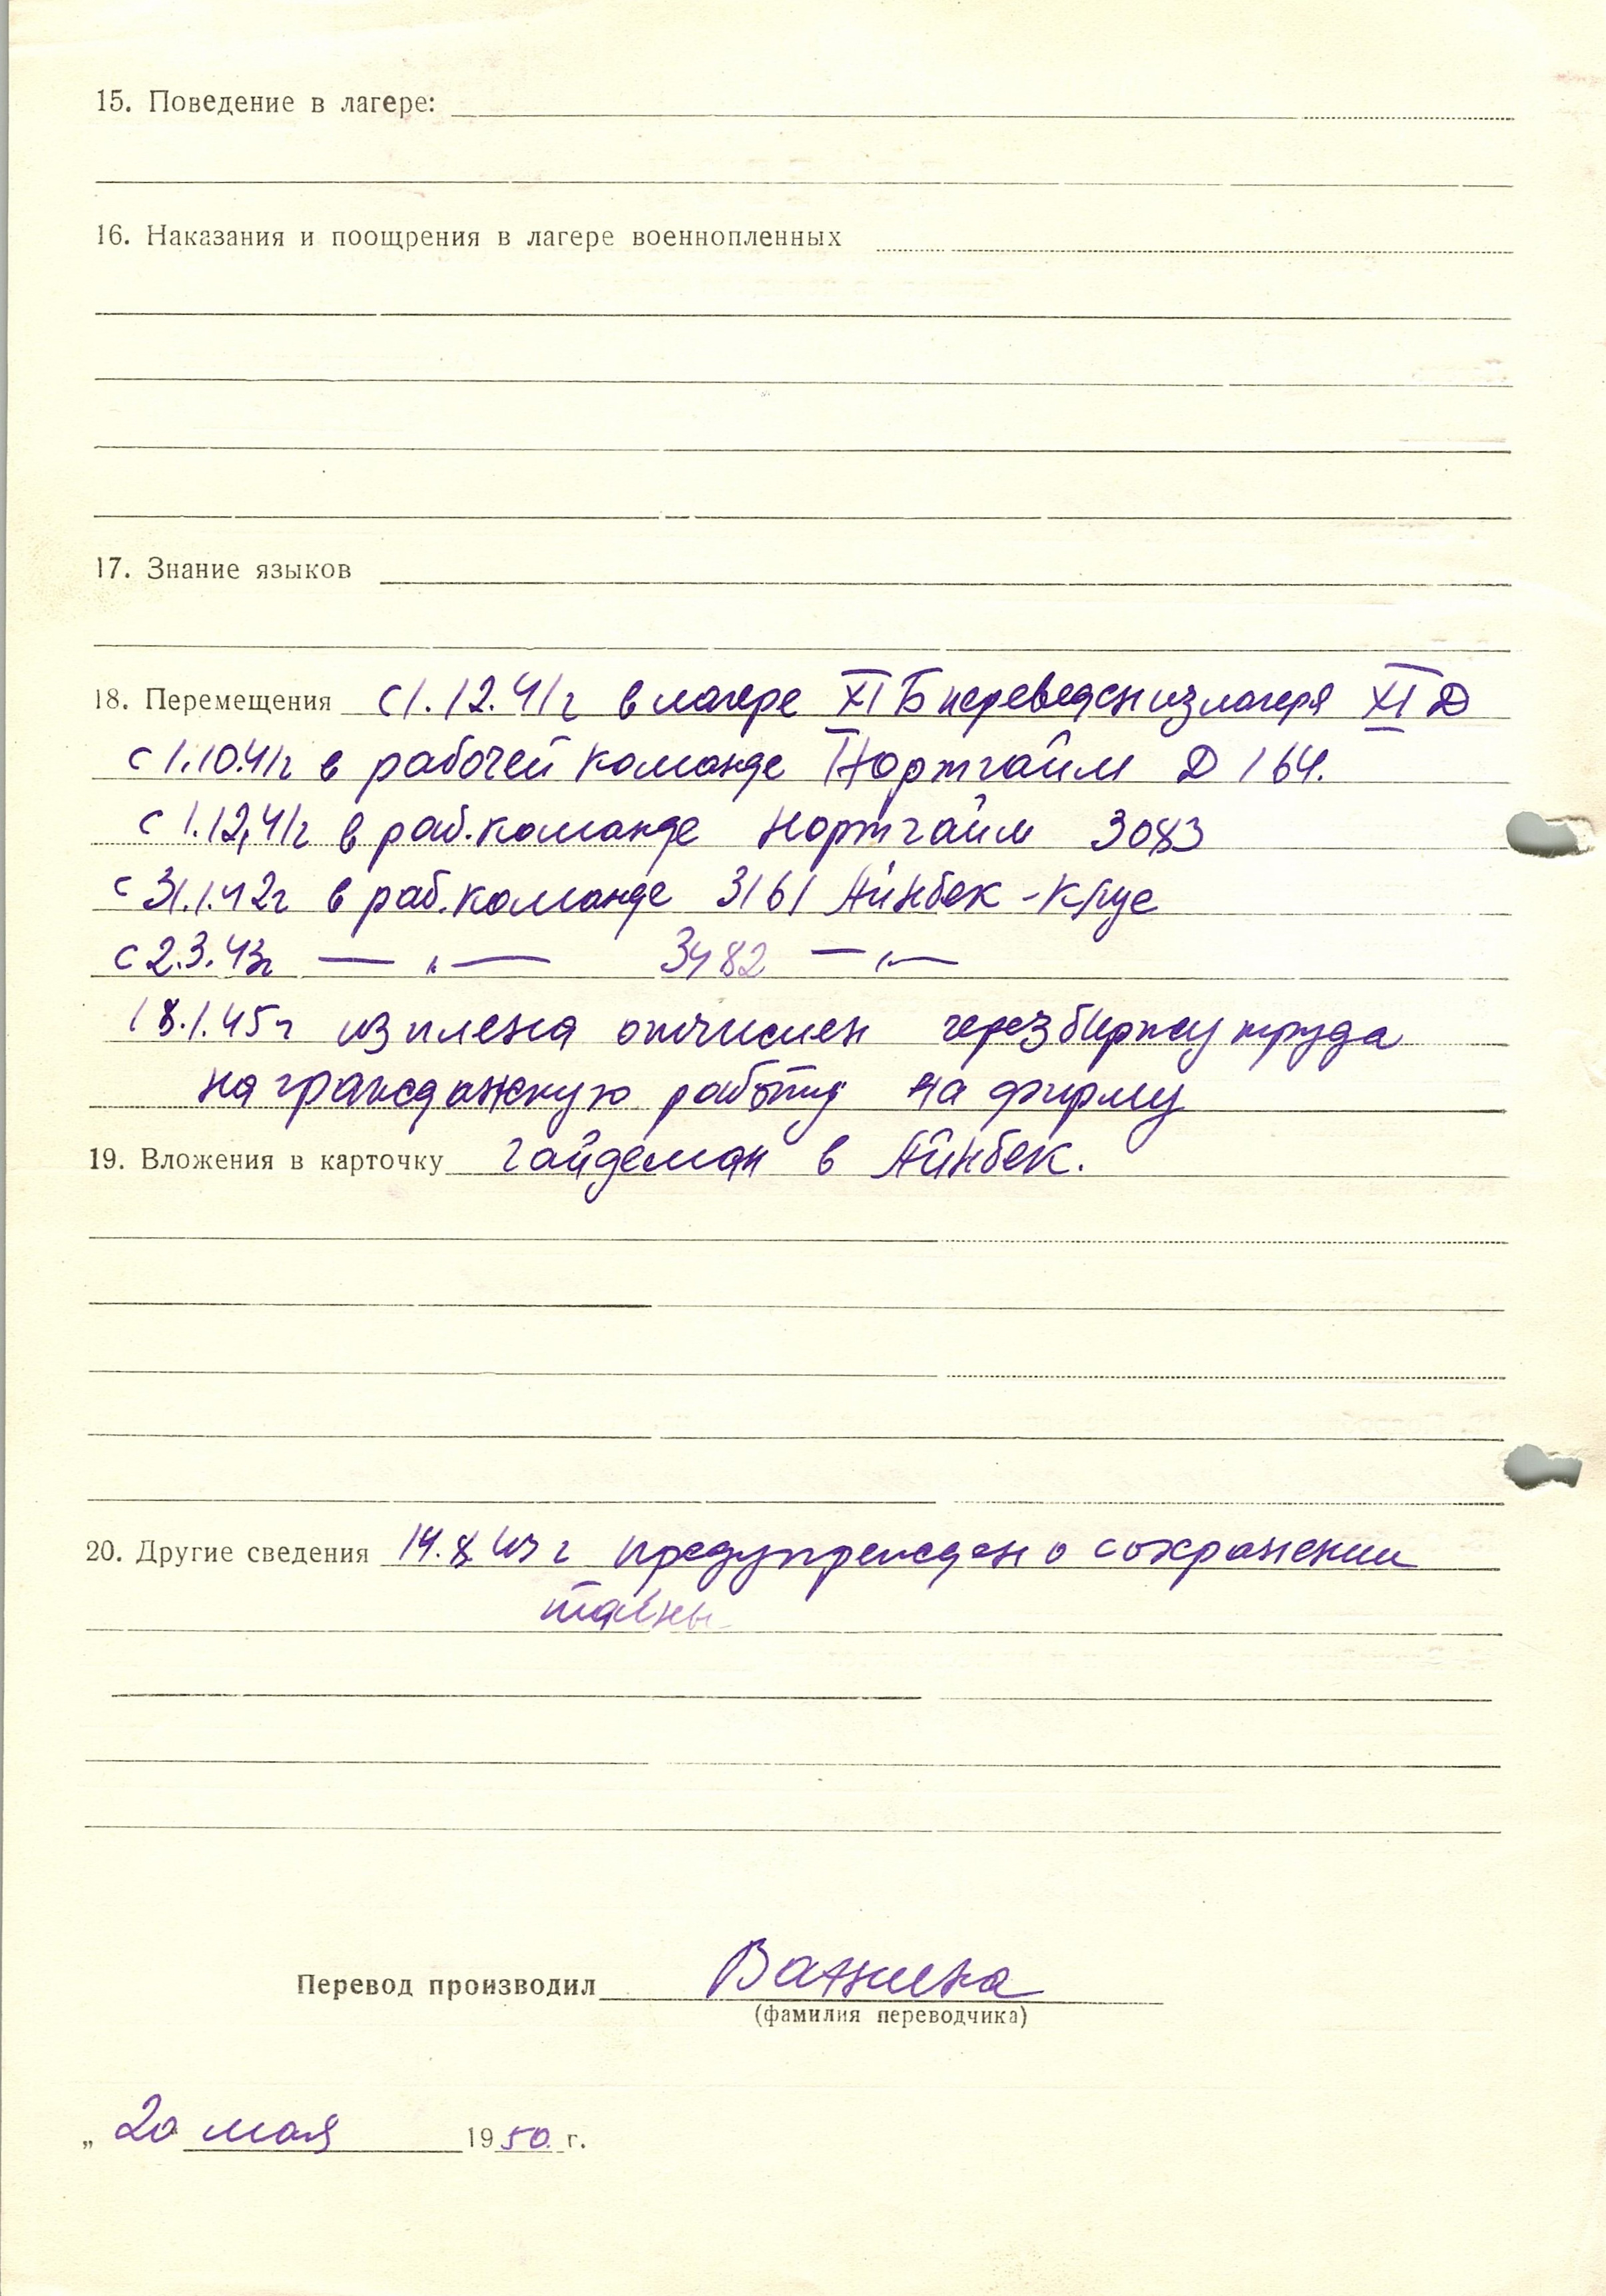 15. Поведение в лагере:
16. Наказания и поощрения в лагере военнопленных
17. Знание языков
18. Перемещения с 1.12.41г в лагере XI Б переведен из лагеря XI Д
с 1.10.41г в рабочей команде Нортгайм Д 164.
с 1.12.41г в раб. команде Нортгайм 3083
с 31.1.42г в раб. команде 3161 Айнбек - Кусе
с 2.3.43г — „ — 3482 — „ —
18.1.45г из плена отчислен через биржу труда
на гражданскую работу на фирму
19. Вложения в карточку Гайдеман в Айнбек.
20. Другие сведения 14.8.43г предупрежден о сохранении
тайны
Перевод производил Ванина
(фамилия переводчика)
„ 20 мая 1950 г.